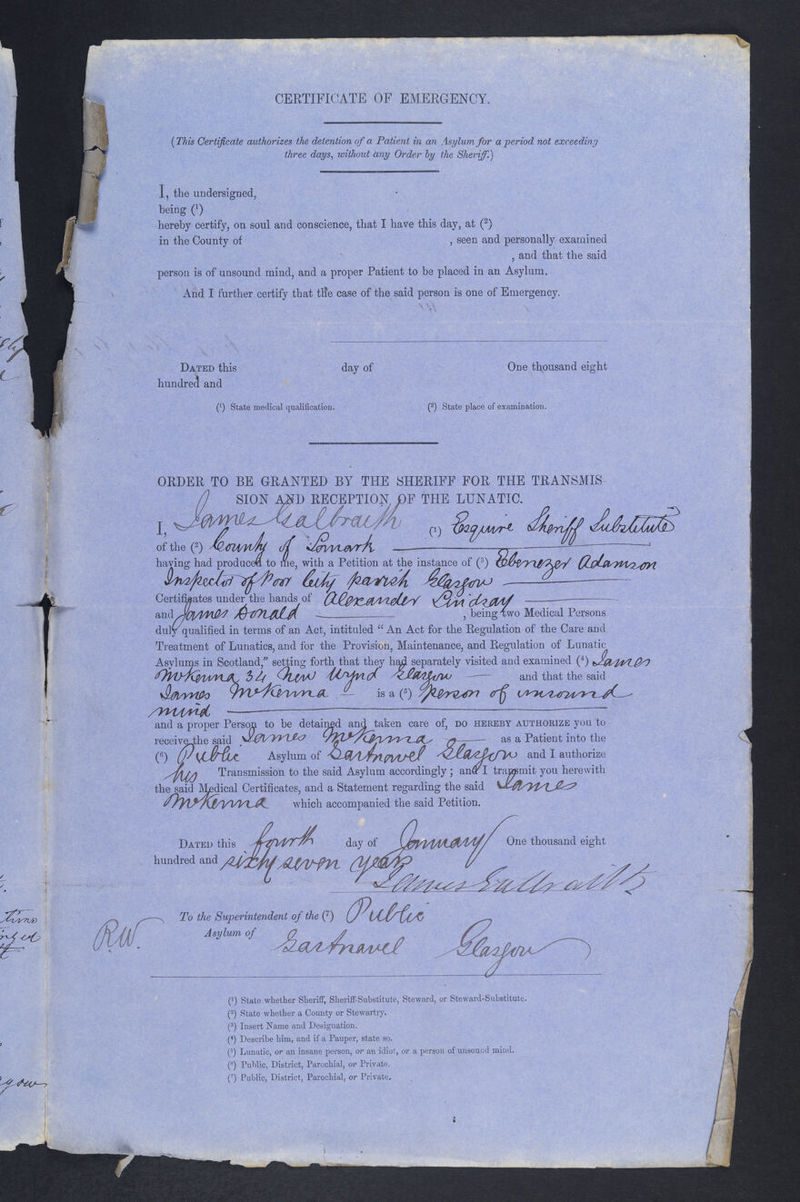 CERTIFICATE OF EMERGENCY.
(This Certificate authorizes the detention of a Patient in an Asylum for a period not exceeding
three days, without any Order by the Sheriff.)
I, the undersigned,
being (¹)
hereby certify, on soul and conscience, that I have this day, at (²)
in the County of , seen and personally examined
, and that the said
person is of unsound mind, and a proper Patient to be placed in an Asylum.
And I further certify that the case of the said person is one of Emergency.
DATED this day of One thousand eight
hundred and
(¹) State medical qualification. (²) State place of examination.
ORDER TO BE GRANTED BY THE SHERIFF FOR THE TRANSMIS-
SION AND RECEPTION OF THE LUNATIC.
I, James Galbraith (¹) Esquire Sheriff Substitute
of the (²) County of Lanark
having had produced to me, with a Petition at the instance of (³) Ebenezer Adamson
Inspector of Poor City parish Glasgow
Certificates under the hands of Alexander Lindsay
and James Donald , being two Medical Persons
duly qualified in terms of an Act, intituled “ An Act for the Regulation of the Care and
Treatment of Lunatics, and for the Provision, Maintenance, and Regulation of Lunatic
Asylums in Scotland,” setting forth that they had separately visited and examined (⁴) James
McKenna 34 New Wynd Glasgow and that the said
James McKenna is a (⁵) person of unsound
mind
and a proper Person to be detained and taken care of, DO HEREBY AUTHORIZE you to
receive the said James McKenna as a Patient into the
(⁶) Public Asylum of Gartnavel Glasgow and I authorize
his Transmission to the said Asylum accordingly ; and I transmit you herewith
the said Medical Certificates, and a Statement regarding the said James
McKenna which accompanied the said Petition.
DATED this fourth day of January One thousand eight
hundred and sixty seven years
James Galbraith
To the Superintendent of the (⁷) Public
R.W. Asylum of Gartnavel Glasgow
(¹) State whether Sheriff, Sheriff-Substitute, Steward, or Steward-Substitute.
(²) State whether a County or Stewartry.
(³) Insert Name and Designation.
(⁴) Describe him, and if a Pauper, state so.
(⁵) Lunatic, or an insane person, or an idiot, or a person of unsound mind.
(⁶) Public, District, Parochial, or Private.
(⁷) Public, District, Parochial, or Private.